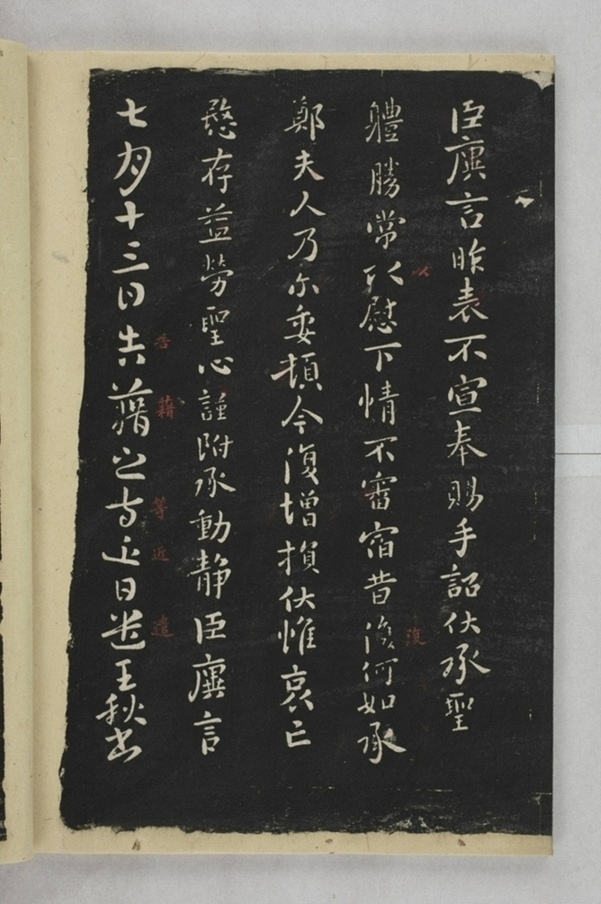 臣廙言昨表不宣奉賜手詔伏承聖
體勝常以慰下情不審宿昔復何如承
鄭夫人乃尓委頓今復增損伏惟哀亡
愍存益勞聖心謹附承動靜臣廙言
七月十三日告藉之等近日遣王秋書
以
復
告
籍
等
近
遣